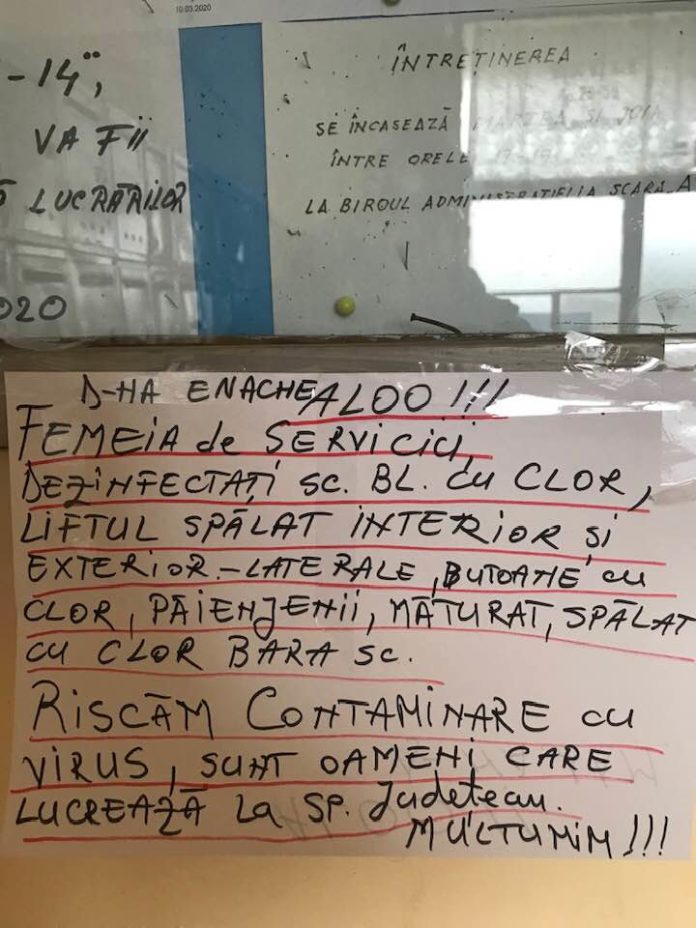 10.03.2020
-14",
VA FII
LUCRĂRILOR
020
ÎNTREȚINEREA
SE ÎNCASEAZĂ MARȚEA ȘI JOIA
ÎNTRE ORELE 17-19
LA BIROUL ADMINISTRAȚIEI LA SCARA A
D-NA ENACHE ALOO!!!
FEMEIA de SERVICIU,
DEZINFECTAȚI SC. BL. cu CLOR,
LIFTUL SPĂLAT INTERIOR și
EXTERIOR.-LATERALE, BUTOANE cu
CLOR, PĂIENJENII, MĂTURAT, SPĂLAT
cu CLOR BARA SC.
RISCĂM CONTAMINARE cu
VIRUS, SUNT OAMENI CARE
LUCREAZĂ La SP. Județean.
MULȚUMIM!!!